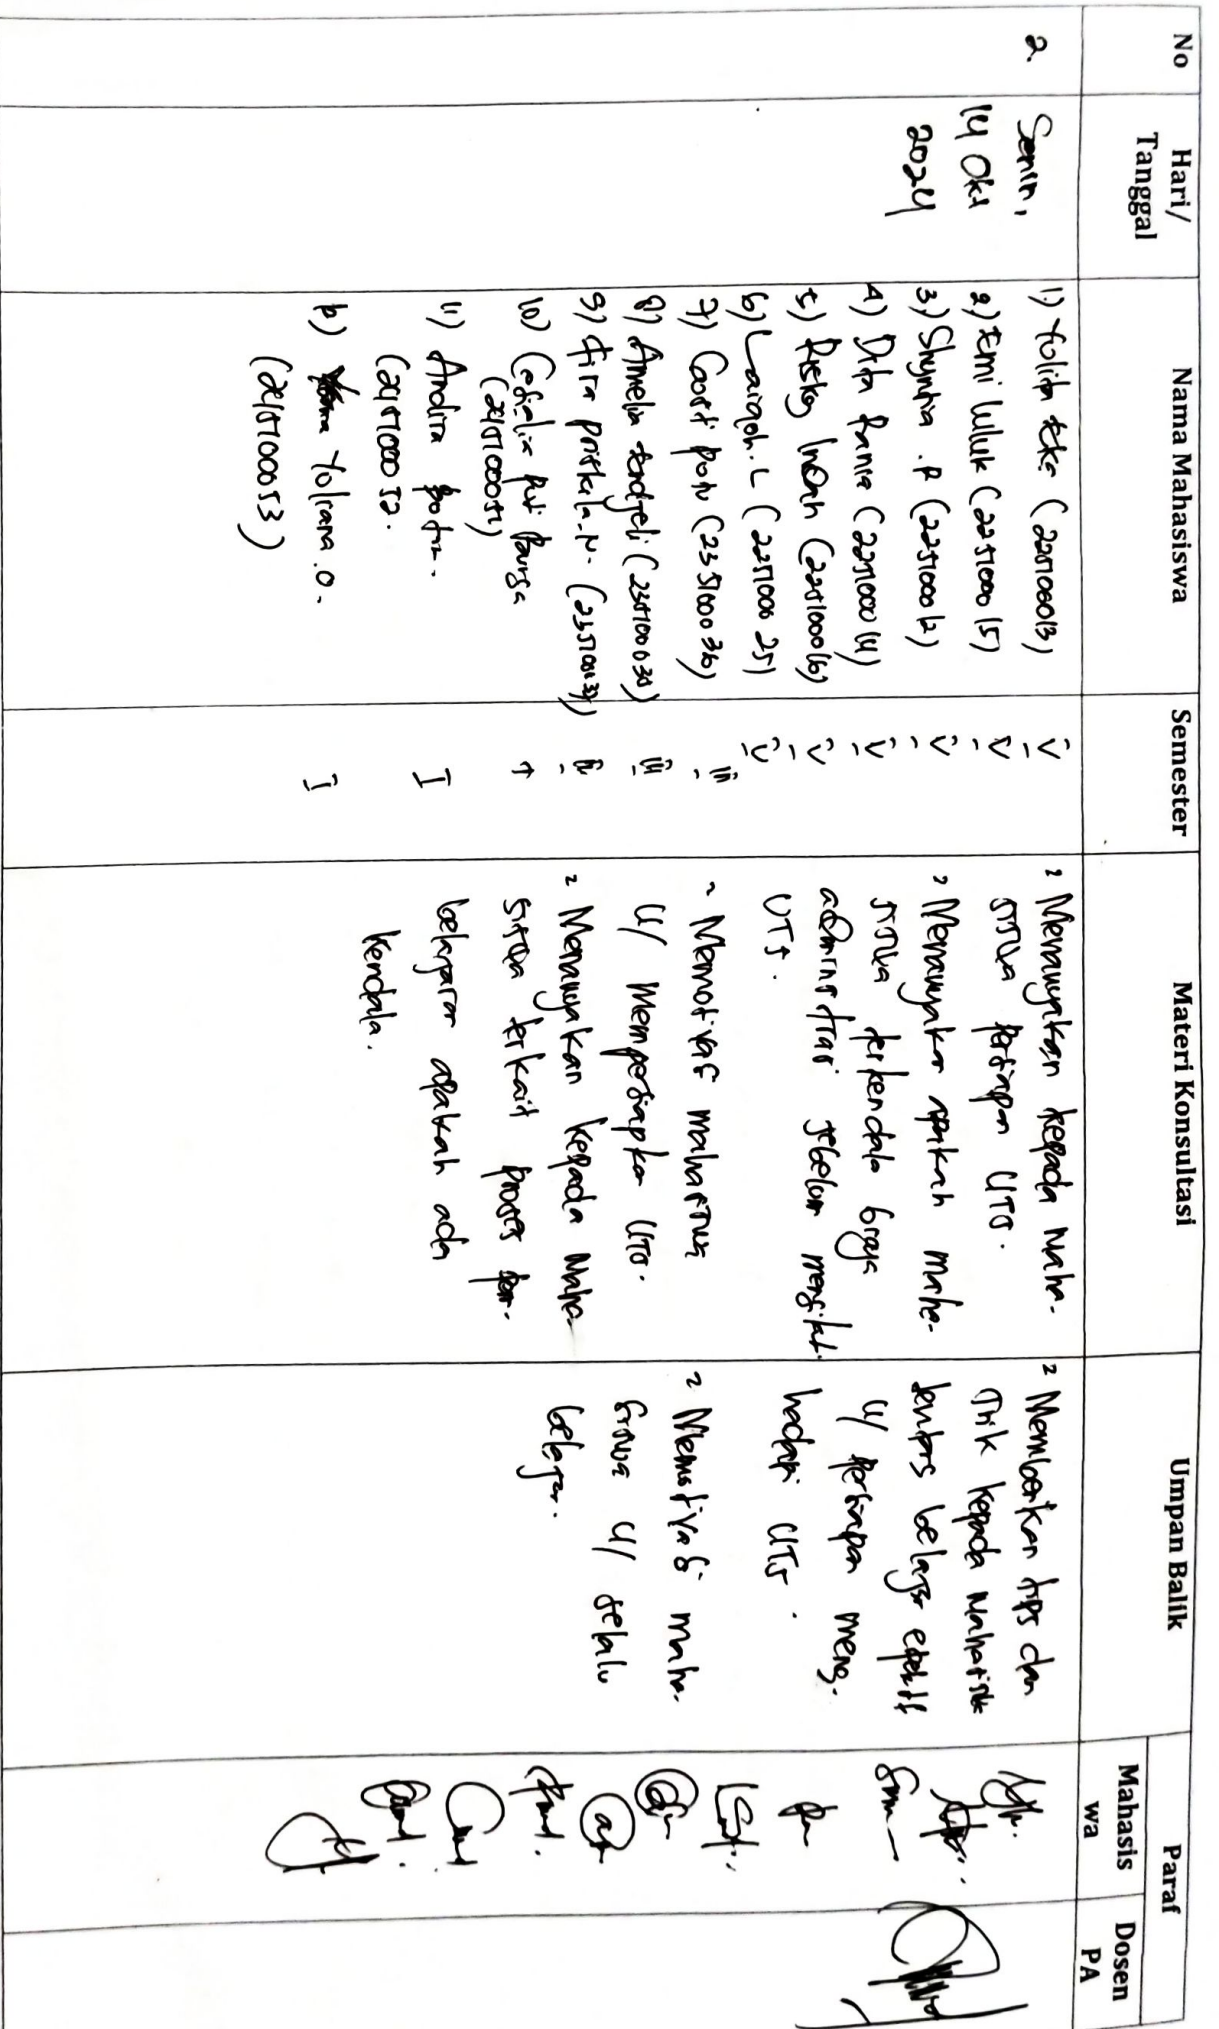 No
Hari/
Tanggal
Nama Mahasiswa
Semester
Materi Konsultasi
Umpan Balik
Paraf
Mahasis
wa
Dosen
PA
2.
Senin,
14 Okt
2024
1) Yolita
2) Erni Luluk (225100015)
3) Shyntia . P (225100012)
4) Dita Rania (225100014)
5) Risky Indah (225100016)
6) Laiqoh. L (225100025)
7) (235100036)
8) Amelia
9) Fira
10)
11) Andira
Yoliana .O.
V
V
V
V
V
V
III
III
I
I
Menanyakan kepada Maha-
siswa persiapan UTS.
Menanyakan apakah maha-
siswa terkendala biaya
administrasi sebelum mengikuti
UTS.
Memotivasi mahasiswa
u/ mempersiapkan UTS.
Menanyakan kepada Maha-
siswa terkait proses
belajaran apakah ada
kendala.
Memberikan tips dan
Trik kepada Mahasiswa
tentang belajar efektif
u/ persiapan meng-
hadapi UTS.
Memotivasi maha-
siswa u/ selalu
belajar.